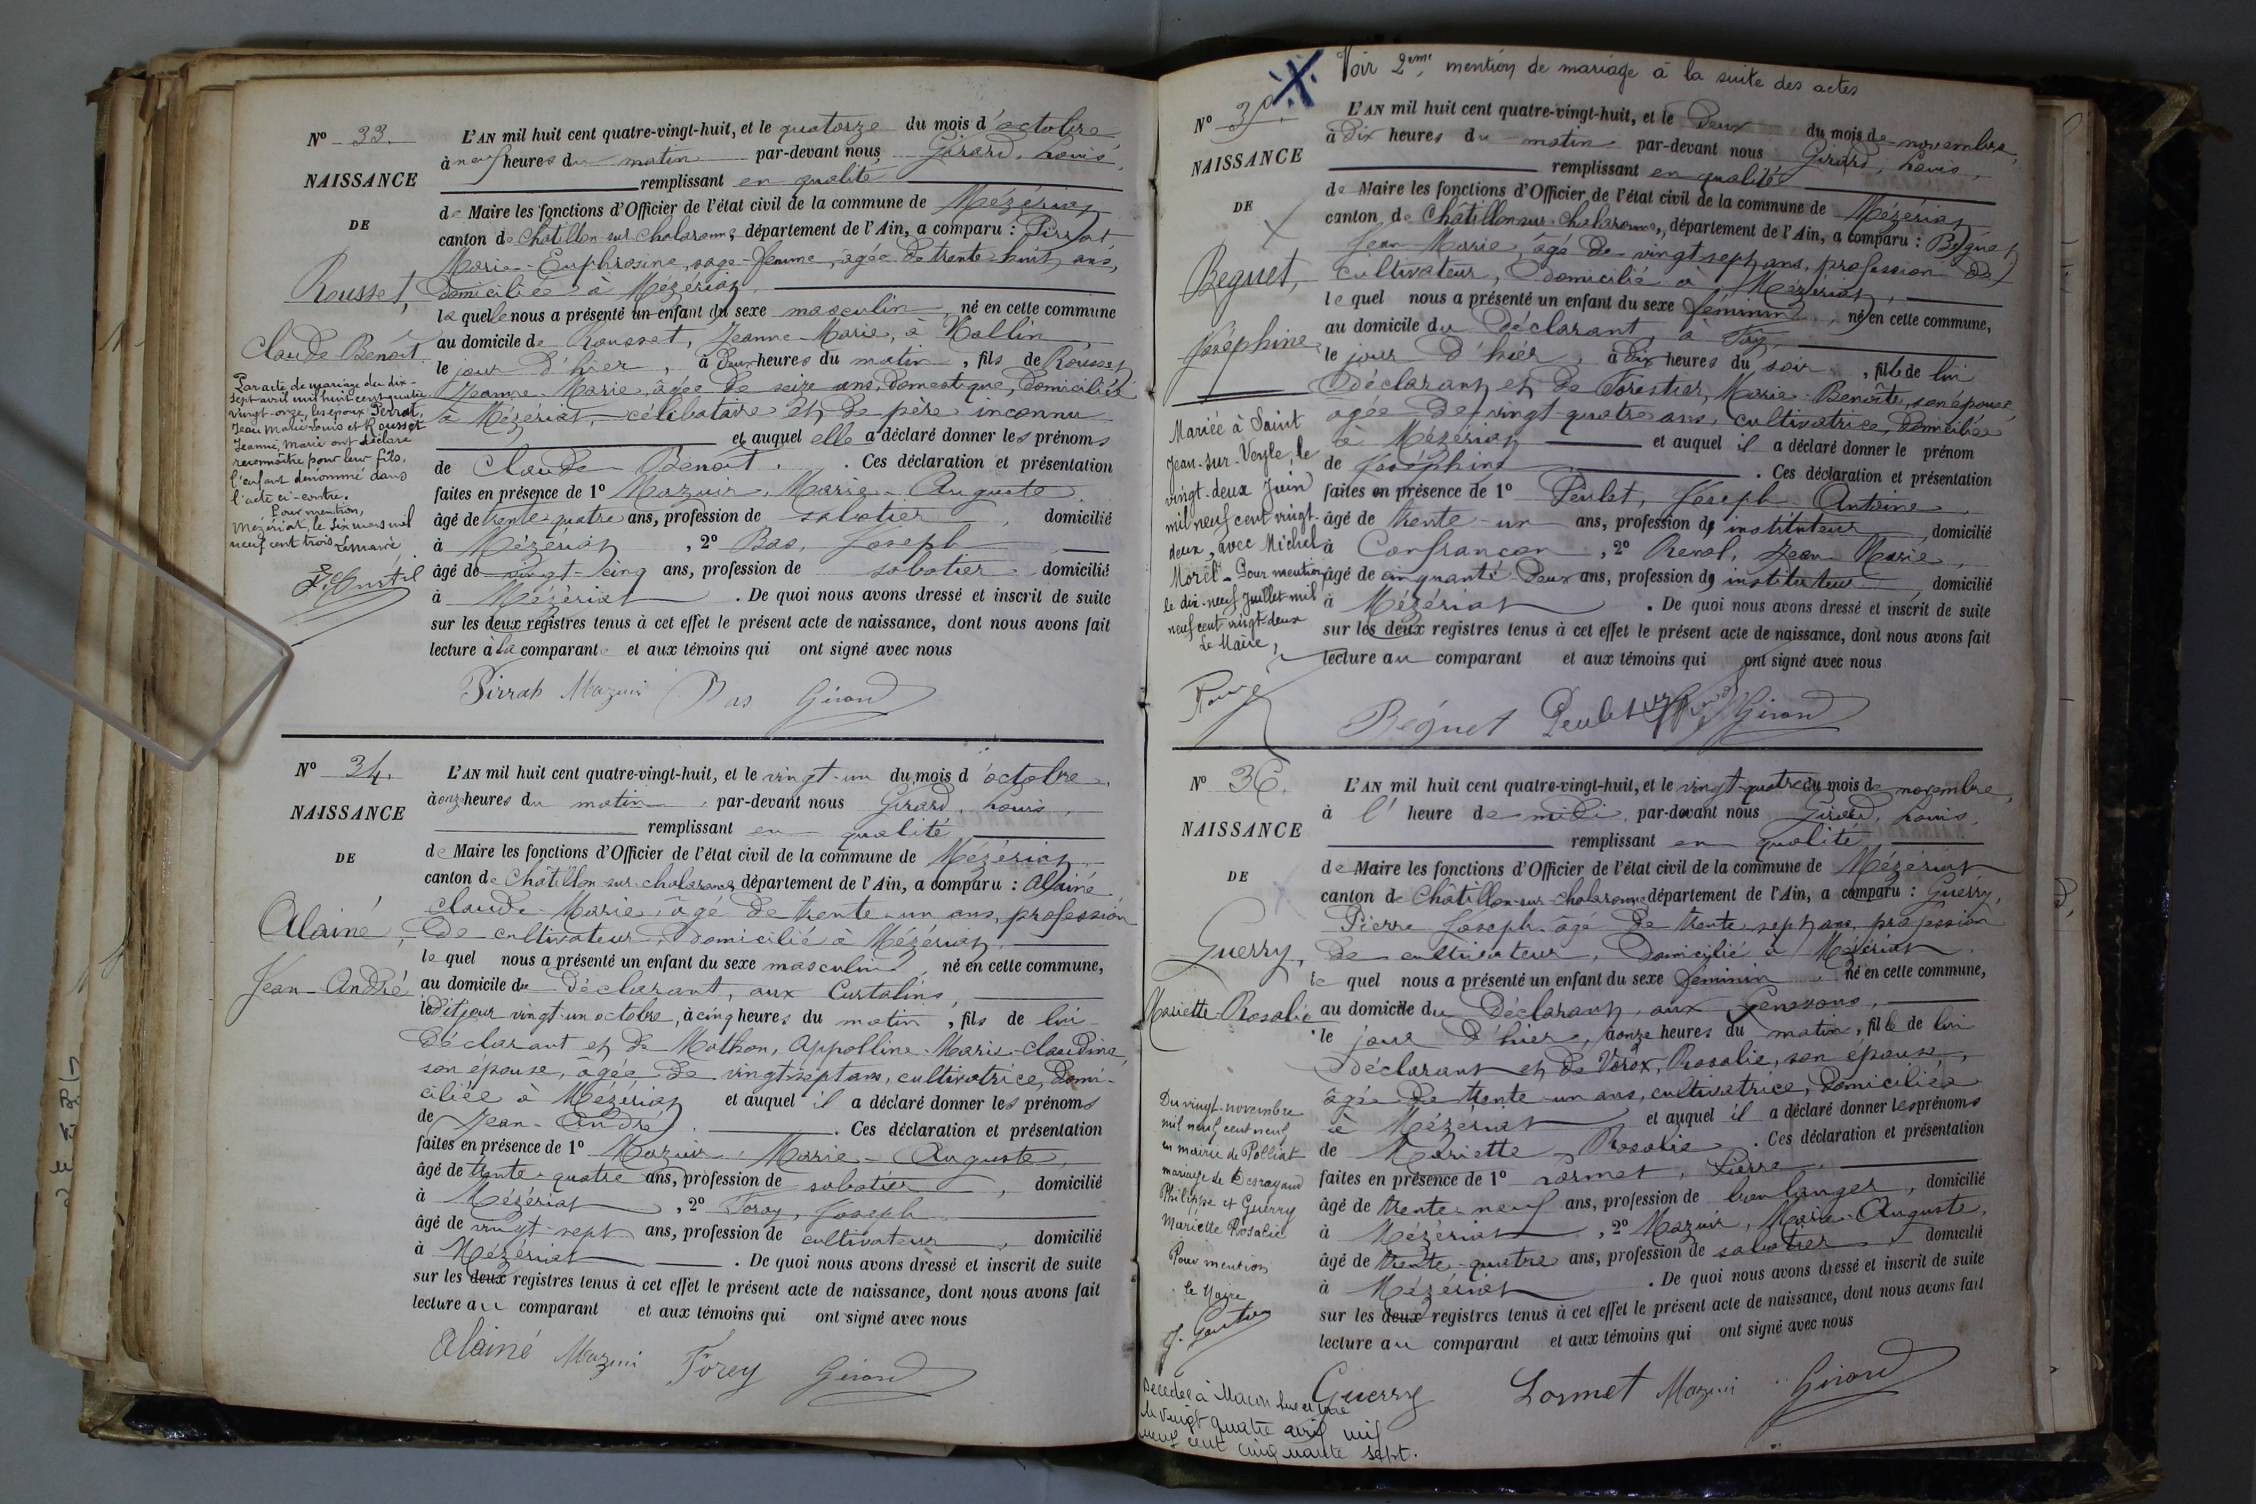 N° 33.
NAISSANCE
DE
Rousset,
Claude Benoit.
Par acte de mariage du dix-
sept avril mil huit cent quatre
vingt-onze, les époux Perrat,
Jean Marie Louis et Rousset
Jeanne Marie ont déclaré
reconnaître pour leur fils,
l'enfant dénommé dans
l'acte ci-contre.
Pour mention,
Mézériat, le six mars mil
neuf cent trois Le maire
L'AN mil huit cent quatre-vingt-huit, et le quatorze du mois d'octobre
à neuf heures du matin par-devant nous Girard, Louis,
remplissant en qualité
de Maire les fonctions d'Officier de l'état civil de la commune de Mézériat
canton de Châtillon-sur-chalaronne, département de l'Ain, a comparu : Pirrat
Marie-Euphrosine, sage-femme, âgée de trente huit ans,
domiciliée à Mézériat.
laquelle nous a présenté un enfant du sexe masculin, né en cette commune
au domicile de Rousset, Jeanne-Marie, à Vallin
le jour d'hier, à deux heures du matin, fils de Rousset
Jeanne-Marie, âgée de seize ans, domestique, domiciliée
à Mézériat, célibataire et de père inconnu
et auquel elle a déclaré donner les prénoms
de Claude Benoit. Ces déclaration et présentation
faites en présence de 1° Mazuir, Marie-Auguste,
âgé de trente-quatre ans, profession de sabotier, domicilié
à Mézériat, 2° Bas, Joseph
âgé de vingt-cinq ans, profession de sabotier, domicilié
à Mézériat. De quoi nous avons dressé et inscrit de suite
sur les deux registres tenus à cet effet le présent acte de naissance, dont nous avons fait
lecture à la comparante et aux témoins qui ont signé avec nous
Pirrat Mazuir Bas Girard
N° 34.
NAISSANCE
DE
Alainé,
Jean-André
L'AN mil huit cent quatre-vingt-huit, et le vingt-un du mois d'octobre,
à onze heures du matin, par-devant nous Girard, Louis,
remplissant en qualité
de Maire les fonctions d'Officier de l'état civil de la commune de Mézériat
canton de Châtillon-sur-chalaronne, département de l'Ain, a comparu : Alainé
Claude-Marie, âgé de trente-un ans, profession
de cultivateur, domicilié à Mézériat,
lequel nous a présenté un enfant du sexe masculin, né en cette commune,
au domicile du déclarant, aux Curtalins,
ledit jour vingt-un octobre, à cinq heures du matin, fils de lui
déclarant et de Mathon, Appolline-Marie-Claudine,
son épouse, âgée de vingt-sept ans, cultivatrice, domi-
ciliée à Mézériat et auquel il a déclaré donner les prénoms
de Jean-André. Ces déclaration et présentation
faites en présence de 1° Mazuir, Marie-Auguste,
âgé de trente-quatre ans, profession de sabotier, domicilié
à Mézériat, 2° Forey, Joseph
âgé de vingt-sept ans, profession de cultivateur, domicilié
à Mézériat. De quoi nous avons dressé et inscrit de suite
sur les deux registres tenus à cet effet le présent acte de naissance, dont nous avons fait
lecture au comparant et aux témoins qui ont signé avec nous
Alainé Mazuir Forey Girard
Voir 2ème mention de mariage à la suite des actes
N° 35.
NAISSANCE
DE
Beguet,
Joséphine
Mariée à Saint
Jean-sur-Veyle, le
vingt-deux Juin
mil neuf cent vingt-
deux, avec Michel
Morel. Pour mention
le dix-neuf Juillet mil
neuf cent vingt deux
Le Maire,
L'AN mil huit cent quatre-vingt-huit, et le deux du mois de novembre,
à dix heures du matin par-devant nous Girard, Louis,
remplissant en qualité
de Maire les fonctions d'Officier de l'état civil de la commune de Mézériat
canton de Châtillon-sur-chalaronne, département de l'Ain, a comparu : Béguet
Jean-Marie, âgé de vingt-sept ans, profession de
cultivateur, domicilié à Mézériat,
lequel nous a présenté un enfant du sexe féminin, né en cette commune,
au domicile du déclarant, à
le jour d'hier, à dix heures du soir, fille de lui
déclarant et de Forestier, Marie-Benoîte, son épouse,
âgée de vingt-quatre ans, cultivatrice, domiciliée
à Mézériat et auquel il a déclaré donner le prénom
de Joséphine. Ces déclaration et présentation
faites en présence de 1° Peulet, Joseph Antoine,
âgé de trente-un ans, profession d'instituteur, domicilié
à Confrançon, 2° Renol, Jean Marie,
âgé de cinquante deux ans, profession d'instituteur, domicilié
à Mézériat. De quoi nous avons dressé et inscrit de suite
sur les deux registres tenus à cet effet le présent acte de naissance, dont nous avons fait
lecture au comparant et aux témoins qui ont signé avec nous
Béguet Peulet Girard
N° 36.
NAISSANCE
DE
Guerry,
Mariette-Rosalie
Du vingt novembre
mil neuf cent neuf
en mairie de Polliat
mariage de Desrayaud
Philippe et Guerry
Mariette Rosalie
Pour mention
Le Maire
Décédée à Macon Saône et Loire
le vingt quatre avril mil
neuf cent cinquante sept.
L'AN mil huit cent quatre-vingt-huit, et le vingt-quatre du mois de novembre,
à l'heure de midi, par-devant nous Girard, Louis,
remplissant en qualité
de Maire les fonctions d'Officier de l'état civil de la commune de Mézériat
canton de Châtillon-sur-chalaronne département de l'Ain, a comparu : Guerry,
Pierre Joseph, âgé de trente sept ans, profession
de cultivateur, domicilié à Mézériat.
lequel nous a présenté un enfant du sexe féminin né en cette commune,
au domicile du déclarant, aux
le jour d'hier, à onze heures du matin, fille de lui
déclarant et de Vorox, Rosalie, son épouse,
âgée de trente-un ans, cultivatrice, domiciliée
à Mézériat et auquel il a déclaré donner les prénoms
de Mariette Rosalie. Ces déclaration et présentation
faites en présence de 1° Lormet, Pierre,
âgé de trente-neuf ans, profession de boulanger, domicilié
à Mézériat, 2° Mazuir, Marie-Auguste,
âgé de trente-quatre ans, profession de sabotier, domicilié
à Mézériat. De quoi nous avons dressé et inscrit de suite
sur les deux registres tenus à cet effet le présent acte de naissance, dont nous avons fait
lecture au comparant et aux témoins qui ont signé avec nous
Guerry Lormet Mazuir Girard